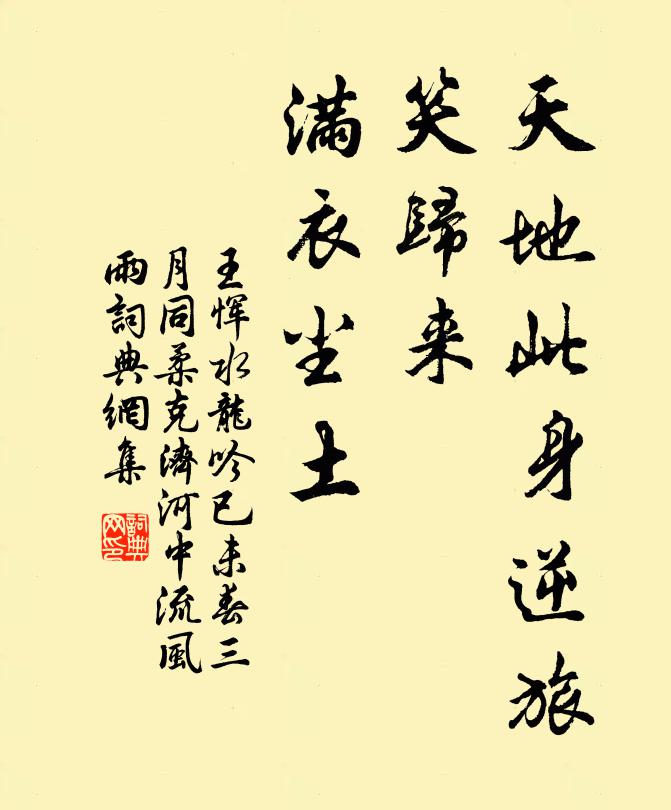 天地此身逆旅
笑歸来
滿衣尘土
王惲水龍吟已未春三
月同柔克濟河中流風
雨詞典網集
詞典
网印